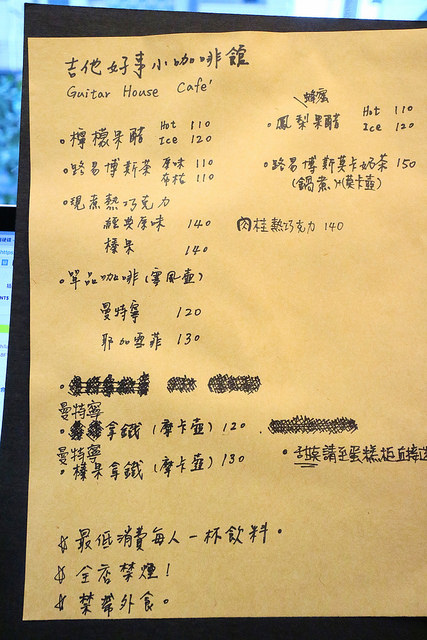 吉他好事小咖啡館
Guitar House Café
・檸檬果醋 Hot 110
Ice 120
蜂蜜
・鳳梨果醋 Hot 110
Ice 120
・路易博斯茶 原味 110
110
・路易博斯莫卡奶茶 150
(鍋煮)(莫卡壺)
・現煮熱巧克力
經典原味 140
榛果 140
肉桂熱巧克力 140
・單品咖啡(雲風壺)
曼特寧 120
耶加雪菲 130
曼特寧
拿鐵(摩卡壺)120
曼特寧
・榛果拿鐵(摩卡壺)130
・甜點請至蛋糕櫃直接選
最低消費每人一杯飲料。
全店禁煙!
禁帶外食。